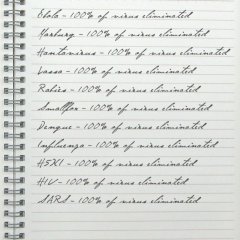 Ebola - 100% of virus eliminated
Marburg - 100% of virus eliminated
Hantavirus - 100% of virus eliminated
Lassa - 100% of virus eliminated
Rabies - 100% of virus eliminated
Smallpox - 100% of virus eliminated
Dengue - 100% of virus eliminated
Influenza - 100% of virus eliminated
H5N1 - 100% of virus eliminated
HIV - 100% of virus eliminated
SARS - 100% of virus eliminated